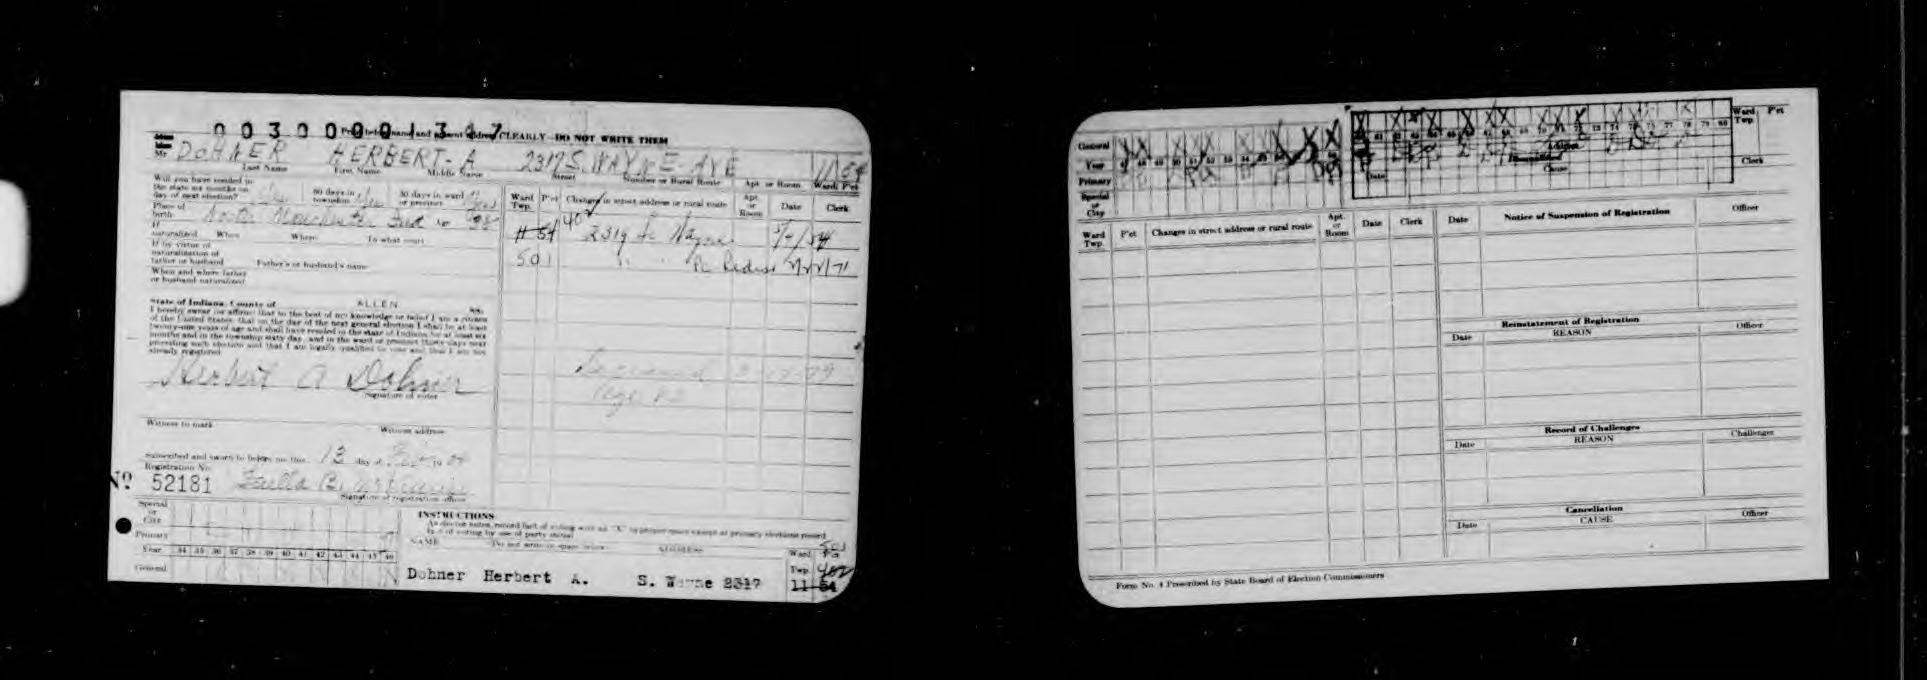 00300001317
Print below name and present address CLEARLY—DO NOT WRITE THEM
Mr DOHNER HERBERT - A 2317 S. WAYNE - AVE 11 54
Last Name First Name Middle Name Street Number or Rural Route Apt. or Room Ward P'ct
Will you have resided in
the state six months on
day of next election? Yes 60 days in township Yes 30 days in ward or precinct Yes
Place of birth North Manchester Ind Age
If naturalized When Where To what court
If by virtue of
naturalization of
father or husband Father's or husband's name
When and where father
or husband naturalized
State of Indiana, County of ALLEN SS:
I hereby swear (or affirm) that to the best of my knowledge or belief I am a citizen
of the United States; that on the day of the next general election I shall be at least
twenty-one years of age and shall have resided in the state of Indiana for at least six
months and in the township sixty days, and in the ward or precinct thirty days next
preceding such election and that I am legally qualified to vote and that I am not
already registered
Herbert A Dohner
Signature of voter
Witness to mark Witness address
Subscribed and sworn to before me this 13 day of 19
Registration No.
No 52181
Signature of registration officer
Special or City
Primary
Year 34 35 36 37 38 39 40 41 42 43 44 45 46
General
Ward Twp. P'ct Changes in street address or rural route Apt. or Room Date Clerk
402
11 54 2319 So Wayne 5/4/54
501 " " Pc Redist 71
Deceased 79
Age
INSTRUCTIONS
As elector votes, record fact of voting with an "X" in proper space except at primary elections record
fact of voting by use of party initial
NAME Do not write in space below ADDRESS Ward Twp. P'ct
501
402
Dohner Herbert A. S. Wayne 2317 11-54
General
Year 47 48 49 50 51 52 53 54 55 56
Primary
Special or City
61 62 63 64 65 66 67 68 69 70 71 72 73 74 75 76 77 78 79 80
Ward Twp. P'ct
Date Cause Clerk
Ward Twp. P'ct Changes in street address or rural route Apt. or Room Date Clerk
Date Notice of Suspension of Registration Officer
Reinstatement of Registration
Date REASON Officer
Record of Challenges
Date REASON Challenger
Cancellation
Date CAUSE Officer
Form No. 4 Prescribed by State Board of Election Commissioners
1